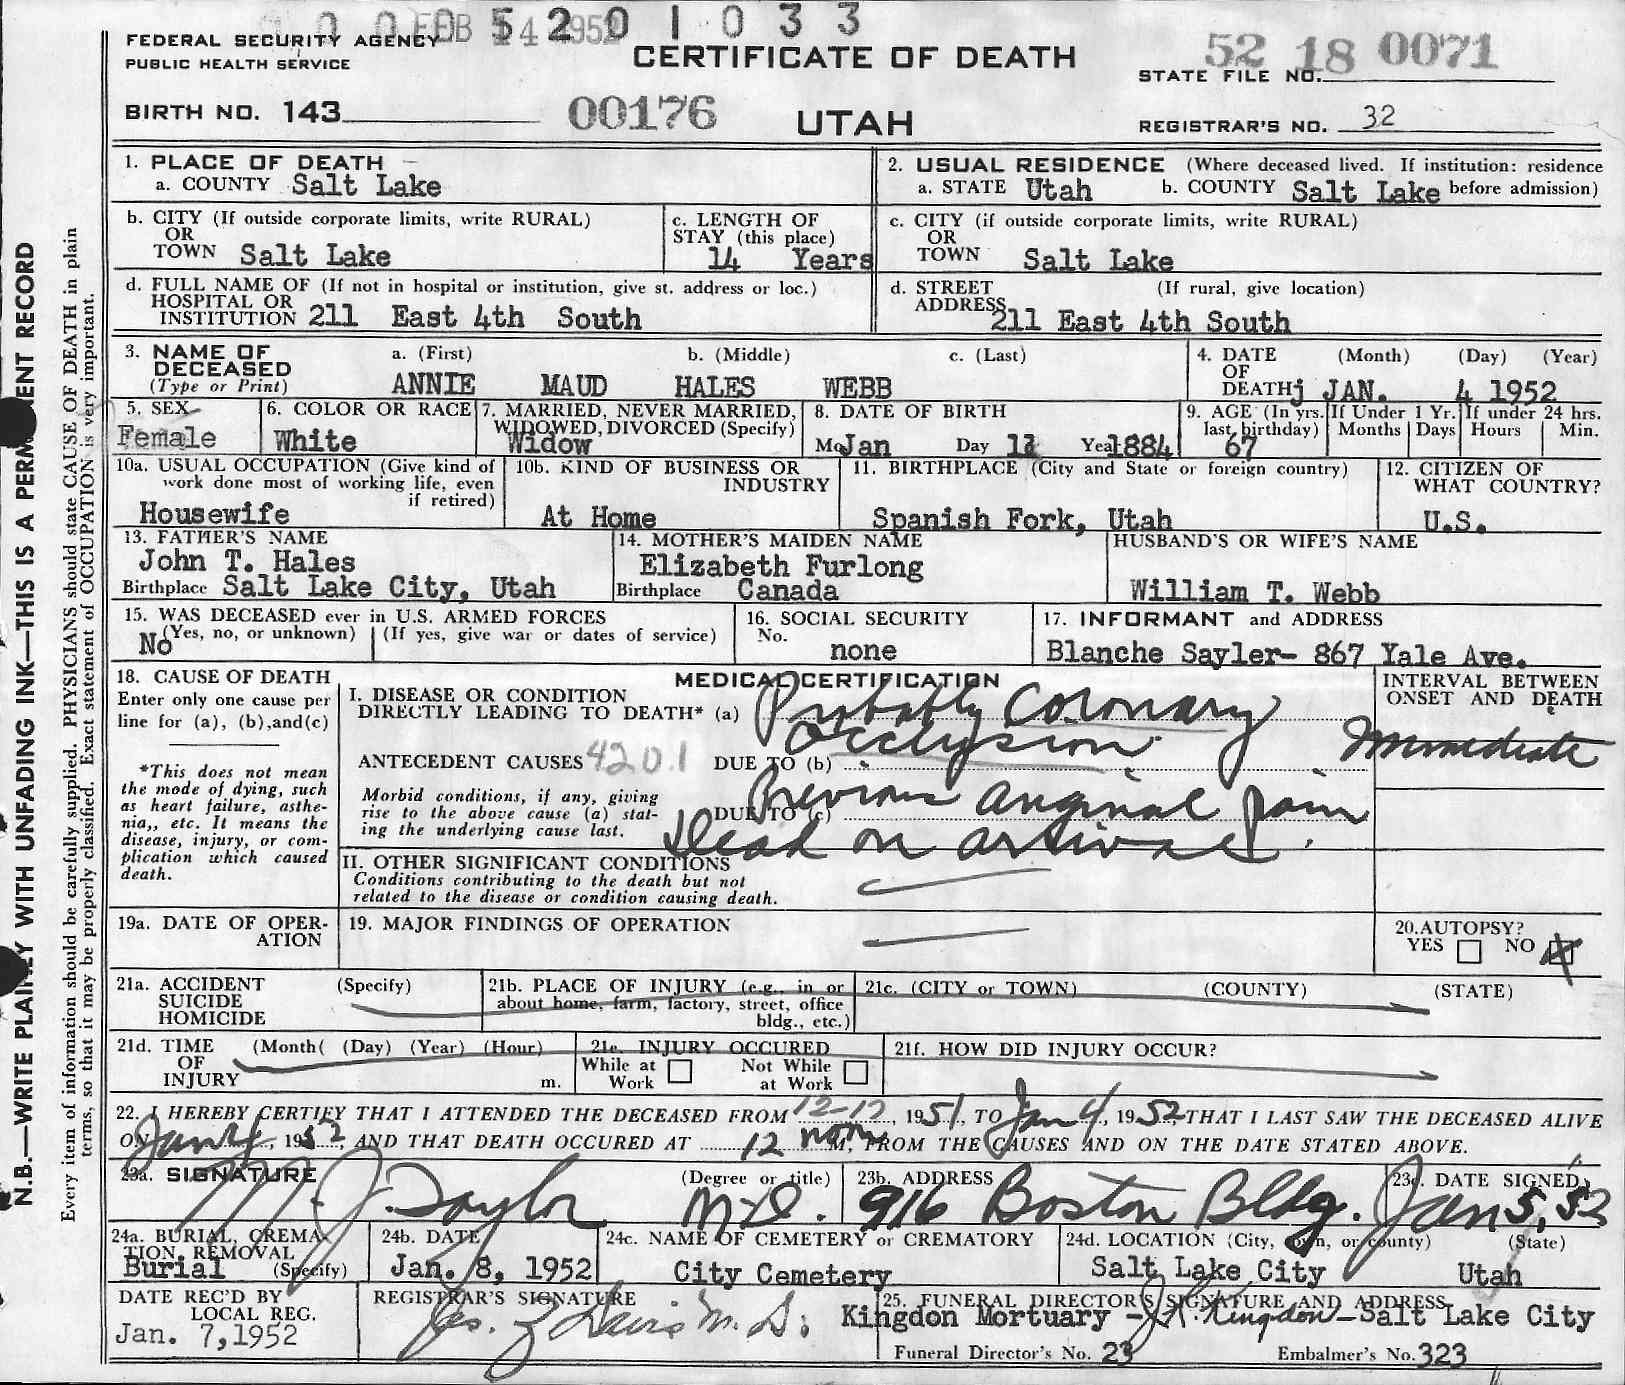 0 0 5 2 0 1 0 3 3
FEB 14 1952
FEDERAL SECURITY AGENCY
PUBLIC HEALTH SERVICE
CERTIFICATE OF DEATH
52 18 0071
STATE FILE NO.
BIRTH NO. 143
00176
UTAH
REGISTRAR'S NO. 32
1. PLACE OF DEATH
a. COUNTY Salt Lake
2. USUAL RESIDENCE (Where deceased lived. If institution: residence
a. STATE Utah b. COUNTY Salt Lake before admission)
b. CITY (If outside corporate limits, write RURAL)
OR
TOWN Salt Lake
c. LENGTH OF
STAY (this place)
14 Years
c. CITY (if outside corporate limits, write RURAL)
OR
TOWN Salt Lake
d. FULL NAME OF (If not in hospital or institution, give st. address or loc.)
HOSPITAL OR
INSTITUTION 211 East 4th South
d. STREET (If rural, give location)
ADDRESS
211 East 4th South
3. NAME OF a. (First) b. (Middle) c. (Last)
DECEASED
(Type or Print) ANNIE MAUD HALES WEBB
4. DATE (Month) (Day) (Year)
OF
DEATH j JAN. 4 1952
5. SEX
Female
6. COLOR OR RACE
White
7. MARRIED, NEVER MARRIED,
WIDOWED, DIVORCED (Specify)
Widow
8. DATE OF BIRTH
Mo Jan Day Year 1884
9. AGE (In yrs.
last birthday)
67
If Under 1 Yr.
Months Days
If under 24 hrs.
Hours Min.
10a. USUAL OCCUPATION (Give kind of
work done most of working life, even
if retired)
Housewife
10b. KIND OF BUSINESS OR
INDUSTRY
At Home
11. BIRTHPLACE (City and State or foreign country)
Spanish Fork, Utah
12. CITIZEN OF
WHAT COUNTRY?
U.S.
13. FATHER'S NAME
John T. Hales
Birthplace Salt Lake City, Utah
14. MOTHER'S MAIDEN NAME
Elizabeth Furlong
Birthplace Canada
HUSBAND'S OR WIFE'S NAME
William T. Webb
15. WAS DECEASED ever in U.S. ARMED FORCES
No (Yes, no, or unknown) (If yes, give war or dates of service)
16. SOCIAL SECURITY
No.
none
17. INFORMANT and ADDRESS
Blanche Sayler- 867 Yale Ave.
18. CAUSE OF DEATH
Enter only one cause per
line for (a), (b),and(c)
*This does not mean
the mode of dying, such
as heart failure, asthe-
nia,, etc. It means the
disease, injury, or com-
plication which caused
death.
MEDICAL CERTIFICATION
I. DISEASE OR CONDITION
DIRECTLY LEADING TO DEATH* (a) Probably Coronary
Occlusion
ANTECEDENT CAUSES 420.1 DUE TO (b)
Morbid conditions, if any, giving
rise to the above cause (a) stat-
ing the underlying cause last.
DUE TO (c) Previous anginal pain
Dead on arrival.
INTERVAL BETWEEN
ONSET AND DEATH
Immediate
II. OTHER SIGNIFICANT CONDITIONS
Conditions contributing to the death but not
related to the disease or condition causing death.
19a. DATE OF OPER-
ATION
19. MAJOR FINDINGS OF OPERATION
20. AUTOPSY?
YES NO X
21a. ACCIDENT (Specify)
SUICIDE
HOMICIDE
21b. PLACE OF INJURY (e.g., in or
about home, farm, factory, street, office
bldg., etc.)
21c. (CITY or TOWN) (COUNTY) (STATE)
21d. TIME (Month( (Day) (Year) (Hour)
OF
INJURY m.
21e. INJURY OCCURED
While at Not While
Work at Work
21f. HOW DID INJURY OCCUR?
22. I HEREBY CERTIFY THAT I ATTENDED THE DECEASED FROM 12-12, 1951, TO Jan 4, 1952 THAT I LAST SAW THE DECEASED ALIVE
ON Jan 4, 1952, AND THAT DEATH OCCURED AT 12 noon M, FROM THE CAUSES AND ON THE DATE STATED ABOVE.
23a. SIGNATURE (Degree or title)
M. J. Taylor M.D.
23b. ADDRESS
916 Boston Bldg.
23c. DATE SIGNED
Jan 5, 52
24a. BURIAL, CREMA-
TION, REMOVAL
Burial (Specify)
24b. DATE
Jan. 8, 1952
24c. NAME OF CEMETERY or CREMATORY
City Cemetery
24d. LOCATION (City, town, or county) (State)
Salt Lake City Utah
DATE REC'D BY
LOCAL REG.
Jan. 7,1952
REGISTRAR'S SIGNATURE
Jas. Z Davis M.D.
25. FUNERAL DIRECTOR'S SIGNATURE AND ADDRESS
Kingdon Mortuary - Kingdon -Salt Lake City
Funeral Director's No. 23 Embalmer's No. 323
N.B.—WRITE PLAINLY WITH UNFADING INK—THIS IS A PERMANENT RECORD
Every item of information should be carefully supplied. PHYSICIANS should state CAUSE OF DEATH in plain
terms, so that it may be properly classified. Exact statement of OCCUPATION is very important.